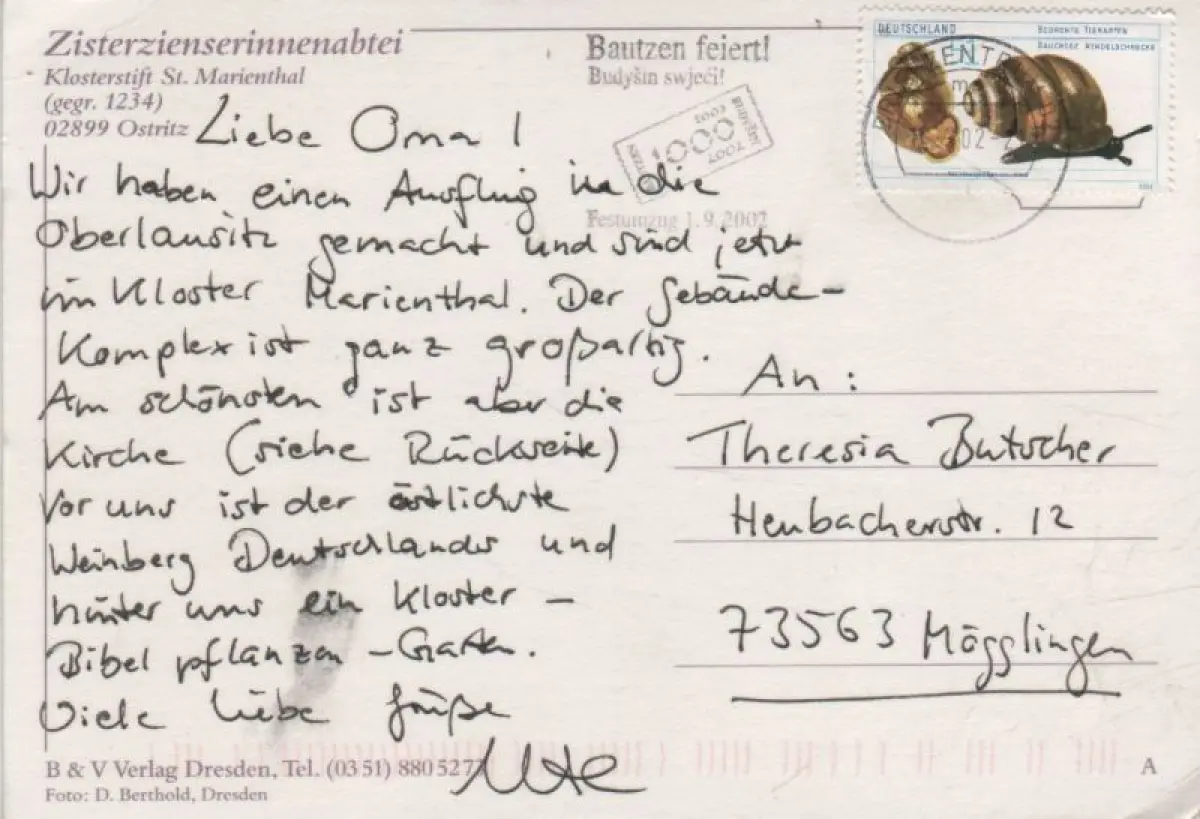 Zisterzienserinnenabtei
Klosterstift St. Marienthal
(gegr. 1234)
02899 Ostritz
Bautzen feiert!
Budyšin swjeći!
1000
BAUTZEN
Festumzug 1.9.2002
DEUTSCHLAND
BEDROHTE TIERARTEN
BAUCHIGE WINDELSCHNECKE
Liebe Oma!
Wir haben einen Ausflug in die
Oberlausitz gemacht und sind jetzt
im Kloster Marienthal. Der Gebäude-
Komplex ist ganz großartig.
Am schönsten ist aber die
Kirche (siehe Rückseite)
Vor uns ist der östlichste
Weinberg Deutschlands und
hinter uns ein Kloster-
Bibelpflanzen-Garten.
Viele liebe Grüße
Ute
An:
Theresia Butscher
Heubacherstr. 12
73563 Mögglingen
B & V Verlag Dresden, Tel. (03 51) 8 80 52 7
Foto: D. Berthold, Dresden
A